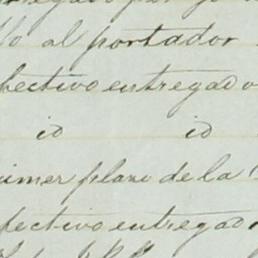 al portador
efectivo entregado
id id
primer plazo de la
efectivo entregado